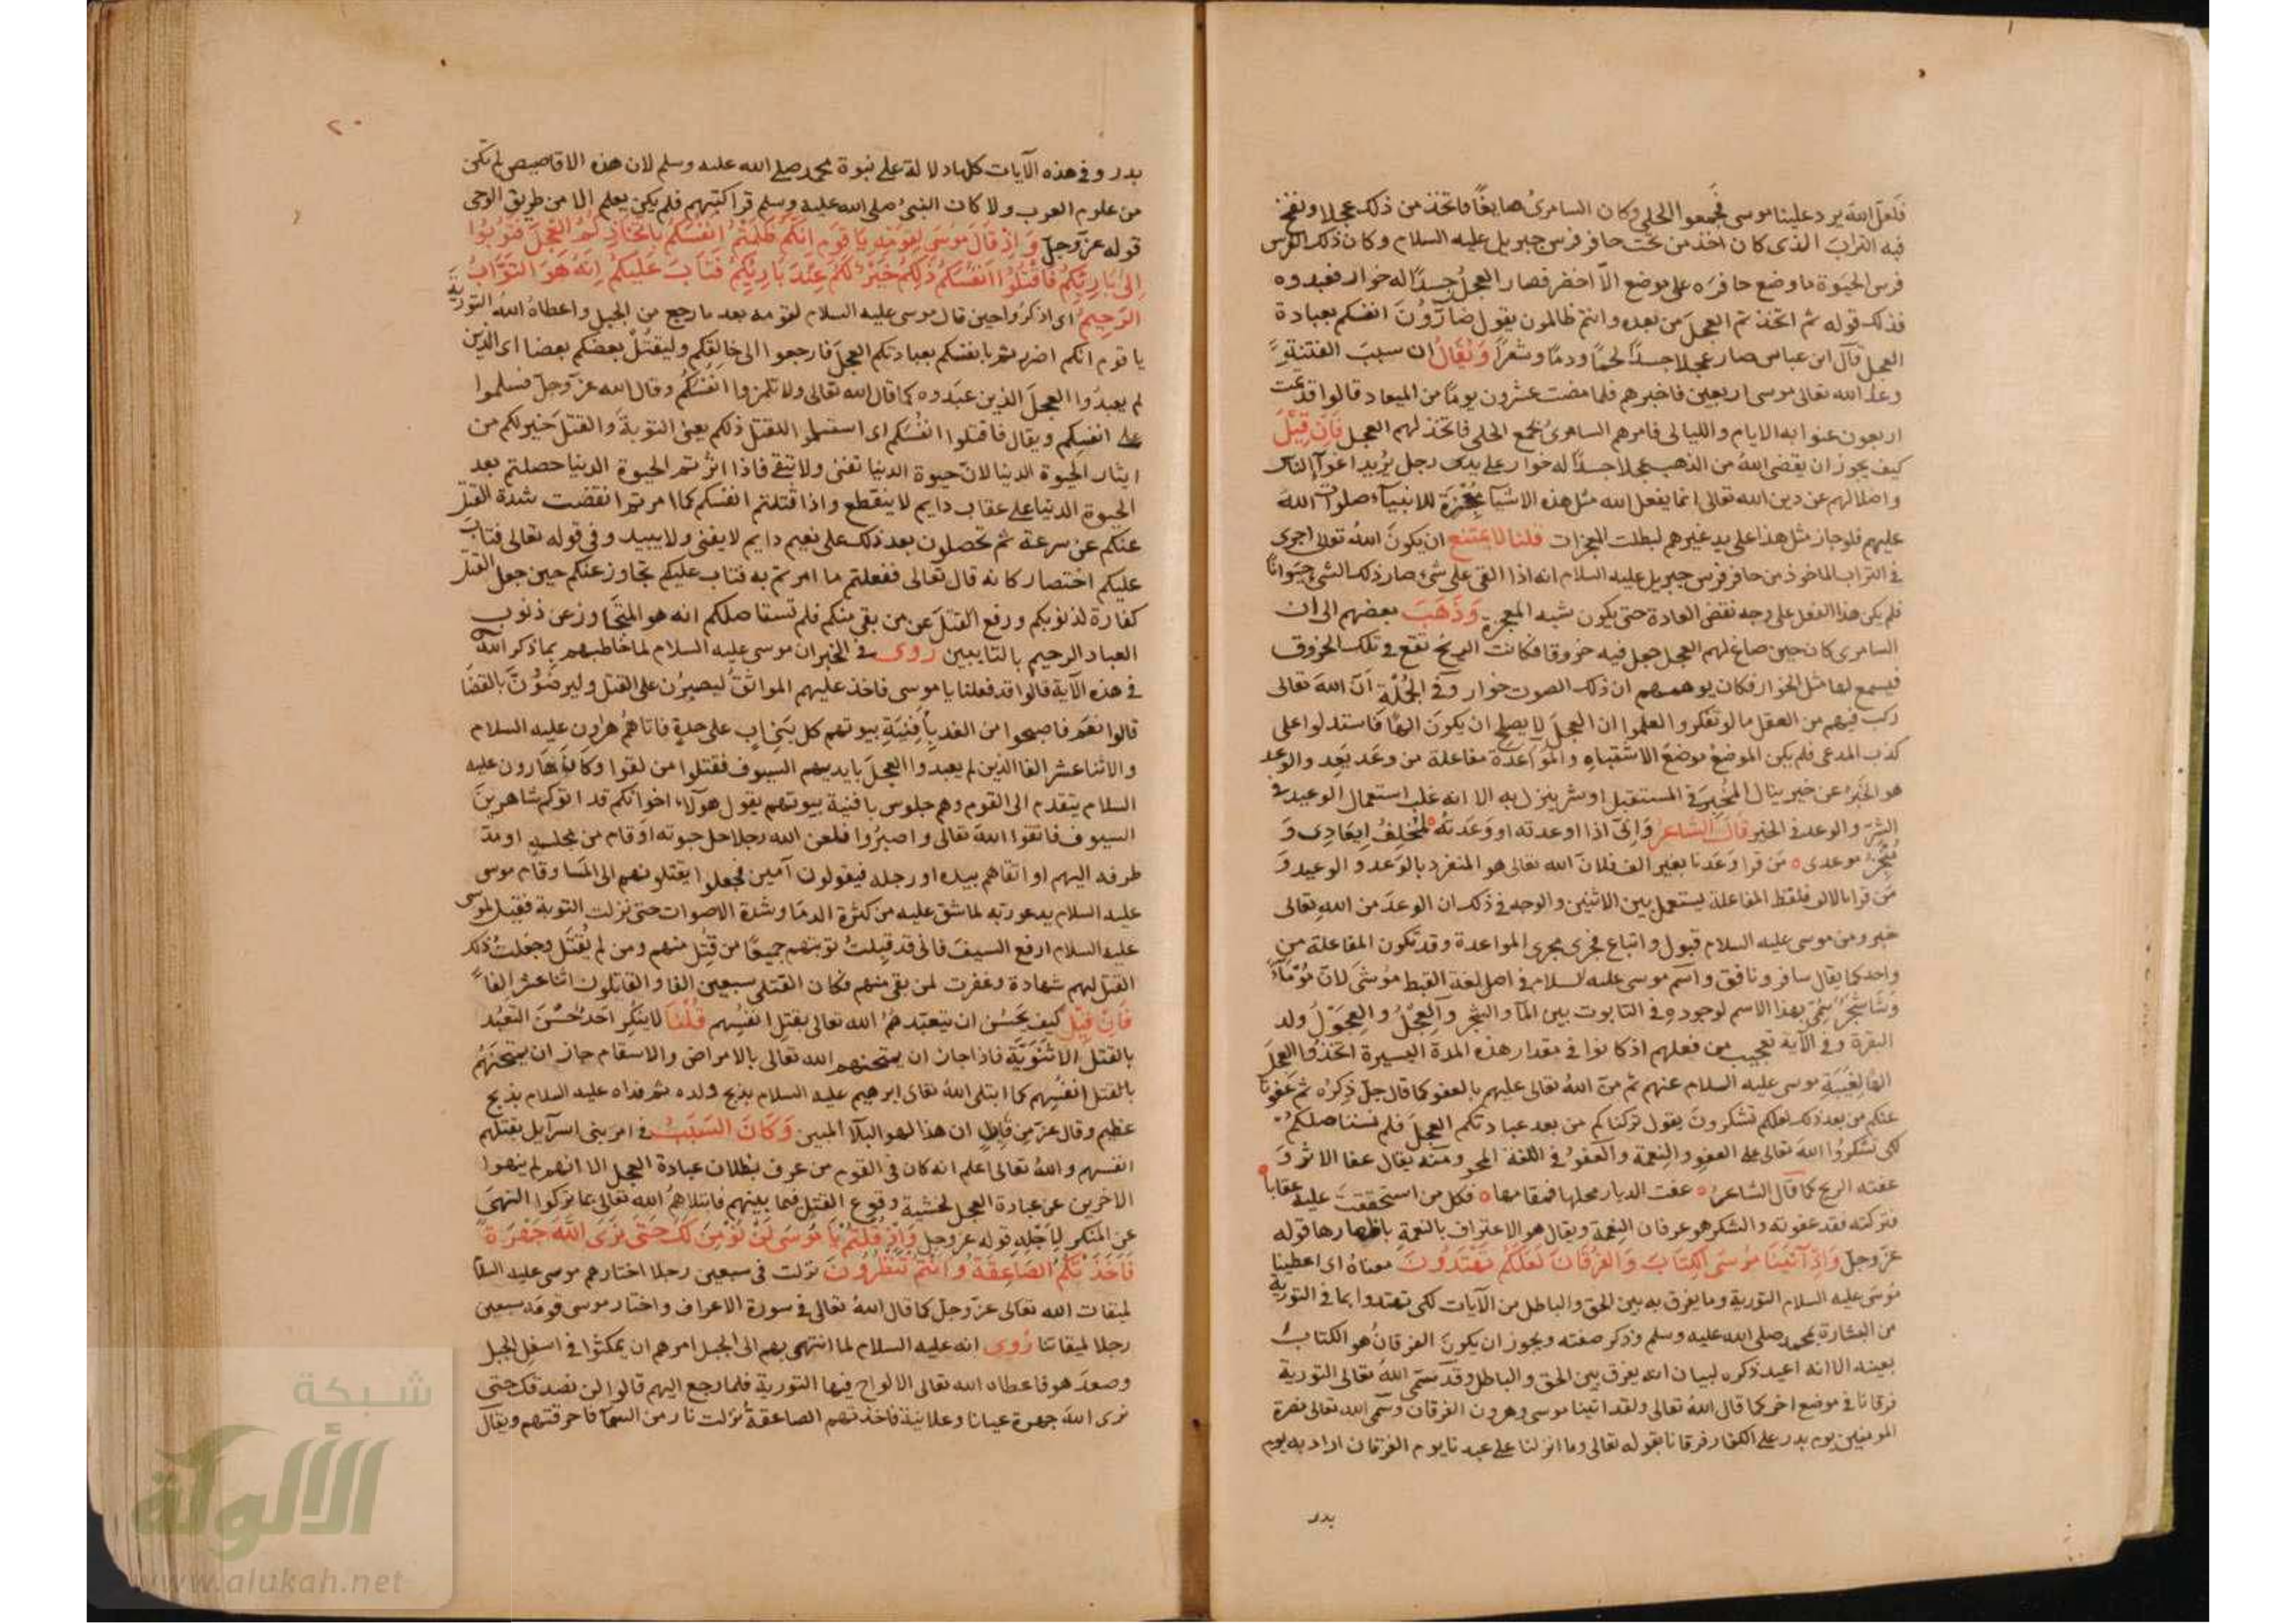 فلعل الله يرد علينا موسى فجمعوا الحلي وكان السامري صايغًا فاتخذ من ذلك عجلا ونفخ
فيه التراب الذى كان اخذ من تحت حافر فرس جبريل عليه السلام وكان ذلك الفرس
فرس الحيوة ما وضع حافره على موضع الا اخضر فصار العجل جسدًا له خوار فعبدوه
فذلك قوله ثم اتخذتم العجل من بعده وانتم ظالمون يقول ضارون انفسكم بعبادة
العجل قال ابن عباس صار عجلا جسدًا لحمًا ودمًا وشعرًا ويقال ان سبب الفتنة
وعد الله تعالى موسى اربعين فاخبرهم فلما مضت عشرون يومًا من الميعاد قالوا قد تمت
اربعون عنوا به الايام والليالى فامرهم السامرى بجمع الحلى فاتخذ لهم العجل فان قيل
كيف يجوز ان يقضى الله من الذهب عجلا جسدًا له خوار على يدى رجل يريد اغوآ الناس
واضلالهم عن دين الله تعالى انما يفعل الله مثل هذه الاشيآ معجزة للانبيآء صلوات الله
عليهم فلو جاز مثل هذا على يد غيرهم لبطلت المعجزات قلنا لا يمتنع ان يكون الله تعالى اجرى
فى التراب الماخوذ من حافر فرس جبريل عليه السلام انه اذا القى على شئ صار ذلك الشئ حيوانًا
فلم يكن هذا الفعل على وجه نقض العادة حتى يكون شبه المعجزة وذهب بعضهم الى ان
السامرى كان حين صاغ لهم العجل جعل فيه خروقا فكانت الريح تقع فى تلك الخروق
فيسمع لها مثل الخوار فكان يوهمهم ان ذلك الصوت خوار وفى الجملة ان الله تعالى
ركب فيهم من العقل ما لو تفكروا لعلموا ان العجل لا يصلح ان يكون الهًا فاستدلوا على
كذب المدعى فلم يكن الموضع موضع الاشتباه والمواعدة مفاعلة من وعد يعد والوعد
هو الخبر عن خير ينال المخبر فى المستقبل او شر ينزل به الا انه غلب استعمال الوعيد فى
الشر والوعد فى الخير قال الشاعر وانى اذا اوعدته او وعدته لمخلف ايعادى و
منجز موعدى من قرا وعدنا بغير الف فلان الله تعالى هو المنفرد بالوعد والوعيد و
من قرا بالالف فلفظ المفاعلة يستعمل بين الاثنين والوجه فى ذلك ان الوعد من الله تعالى
خبر ومن موسى عليه السلام قبول واتباع فجرى مجرى المواعدة وقد تكون المفاعلة من
واحد كما يقال سافر ونافق واسم موسى عليه السلام فى اصل لغة القبط موشى لان مو مآء
وشا شجر سمى بهذا الاسم لوجوده فى التابوت بين المآ والشجر والعجل والعجول ولد
البقرة وفى الآية تعجيب من فعلهم اذ كانوا فى مقدار هذه المدة اليسيرة اتخذوا العجل
الهًا لغيبة موسى عليه السلام عنهم ثم من الله تعالى عليهم بالعفو كما قال جل ذكره ثم عفونا
عنكم من بعد ذلك لعلكم تشكرون يقول تركناكم من بعد عبادتكم العجل فلم نستاصلكم
لكى تشكروا الله تعالى على العفو والنعمة والعفو فى اللغة المحو ومنه يقال عفا الاثر و
عفته الريح كما قال الشاعر عفت الديار محلها فمقامها فكل من استحققت عليه عقابا
فتركته فقد عفوته والشكر هو عرفان النعمة ويقال هو الاعتراف بالنعمة باظهارها قوله
عز وجل واذ آتينا موسى الكتاب والفرقان لعلكم تهتدون معناه اى اعطينا
موسى عليه السلام التورية وما يفرق به بين الحق والباطل من الآيات لكى تهتدوا بما فى التورية
من البشارة بمحمد صلى الله عليه وسلم وذكر صفته ويجوز ان يكون الفرقان هو الكتاب
بعينه الا انه اعيد ذكره لبيان انه يفرق بين الحق والباطل وقد سمى الله تعالى التورية
فرقانا فى موضع اخر كما قال الله تعالى ولقد اتينا موسى وهرون الفرقان وسمى الله تعالى نصرة
المومنين يوم بدر على الكفار فرقانا بقوله تعالى وما انزلنا على عبدنا يوم الفرقان اراد به يوم
بدر
٢٠
بدر وفى هذه الآيات كلها دلالة على نبوة محمد صلى الله عليه وسلم لان هذه الاقاصيص لم تكن
من علوم العرب ولا كان النبى صلى الله عليه وسلم قرا كتبهم فلم يكن يعلم الا من طريق الوحى
قوله عز وجل واذ قال موسى لقومه يا قوم انكم ظلمتم انفسكم باتخاذكم العجل فتوبوا
الى بارئكم فاقتلوا انفسكم ذلكم خير لكم عند بارئكم فتاب عليكم انه هو التواب
الرحيم اى اذكروا حين قال موسى عليه السلام لقومه بعد ما رجع من الجبل واعطاه الله التورية
يا قوم انكم اضررتم بانفسكم بعبادتكم العجل فارجعوا الى خالقكم وليقتل بعضكم بعضا اى الذين
لم يعبدوا العجل الذين عبدوه كما قال الله تعالى ولا تلمزوا انفسكم وقال الله عز وجل فسلموا
على انفسكم ويقال فاقتلوا انفسكم اى استسلموا للقتل ذلكم يعنى التوبة والقتل خير لكم من
ايثار الحيوة الدنيا لان حيوة الدنيا تفنى ولا تبقى فاذا اثرتم الحيوة الدنيا حصلتم بعد
الحيوة الدنيا على عقاب دايم لا ينقطع واذا قتلتم انفسكم كما امرتم انقضت شدة القتل
عنكم عن سرعة ثم تحصلون بعد ذلك على نعيم دايم لا يفنى ولا يبيد وفى قوله تعالى فتاب
عليكم اختصار كانه قال تعالى ففعلتم ما امرتم به فتاب عليكم تجاوز عنكم حين جعل القتل
كفارة لذنوبكم ورفع القتل عن من بقى منكم فلم تستاصلكم انه هو المتجاوز عن ذنوب
العباد الرحيم بالتايبين روى فى الخبر ان موسى عليه السلام لما خاطبهم بما ذكر الله
فى هذه الآية قالوا قد فعلنا يا موسى فاخذ عليهم المواثق ليصبرن على القتل وليرضون بالقضا
قالوا نعم فاصبحوا من الغد بافنية بيوتهم كل بنى اب على حدة فاتاهم هرون عليه السلام
والاثنا عشر الفا الذين لم يعبدوا العجل بايديهم السيوف فقتلوا من لقوا وكان هارون عليه
السلام يتقدم الى القوم وهم جلوس بافنية بيوتهم يقول هولآء اخوانكم قد اتوكم شاهرين
السيوف فاتقوا الله تعالى واصبروا فلعن الله رجلا حل حبوته او قام من مجلسه او مد
طرفه اليهم او اتقاهم بيده او رجله فيقولون آمين فجعلوا يقتلونهم الى المسا وقام موسى
عليه السلام يدعو ربه لما شق عليه من كثرة الدما وشدة الاصوات حتى نزلت التوبة فقيل لموسى
عليه السلام ارفع السيف فانى قد قبلت توبتهم جميعًا من قتل منهم ومن لم يقتل وجعلت ذلك
القتل لهم شهادة وغفرت لمن بقى منهم فكان القتلى سبعين الفا والقاتلون اثنا عشر الفا
فان قيل كيف يحسن ان يتعبدهم الله تعالى بقتل انفسهم قلنا لا ينكر احد حسن التعبد
بالقتل فاذا جاز ان يمتحنهم الله تعالى بالامراض والاسقام جاز ان يمتحنهم
بالقتل انفسهم كما ابتلى الله تعالى ابرهيم عليه السلام بذبح ولده ثم فداه عليه السلام بذبح
عظيم وقال عز من قايل ان هذا لهو البلآ المبين وكان السبب فى امر بنى اسرآيل بقتلهم
انفسهم والله تعالى اعلم انه كان فى القوم من عرف بطلان عبادة العجل الا انهم لم ينهوا
الاخرين عن عبادة العجل لخشية وقوع القتل فيما بينهم فابتلاهم الله تعالى بما تركوا النهى
عن المنكر لاجله قوله عز وجل واذ قلتم يا موسى لن نؤمن لك حتى نرى الله جهرة
فاخذتكم الصاعقة وانتم تنظرون نزلت فى سبعين رجلا اختارهم موسى عليه السلام
لميقات الله تعالى عز وجل كما قال الله تعالى فى سورة الاعراف واختار موسى قومه سبعين
رجلا لميقاتنا روى انه عليه السلام لما انتهى بهم الى الجبل امرهم ان يمكثوا فى اسفل الجبل
وصعد هو فاعطاه الله تعالى الالواح فيها التورية فلما رجع اليهم قالوا لن نصدقك حتى
نرى الله جهرة عيانا وعلانية فاخذتهم الصاعقة نزلت نار من السمآ فاحرقتهم ويقال
شبكة
الألوكة
www.alukah.net